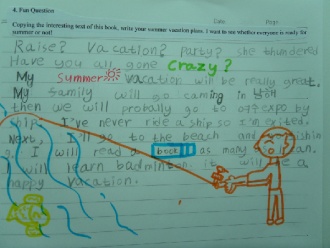 4. Fun Question
Date Page
Copying the interesting text of this book, write your summer vacation plans. I want to see whether everyone is ready for
summer or not!
Raise? Vacation? Party? she thundered
Have you all gone crazy?
My summer vacation will be really great.
My family will go caming in
then we will probally go to expo by
ship. I've never ride a ship so I'm exited.
Next, I'll go to the beach and
I will read a book as many
I will learn badminton. it will be a
happy vacation.